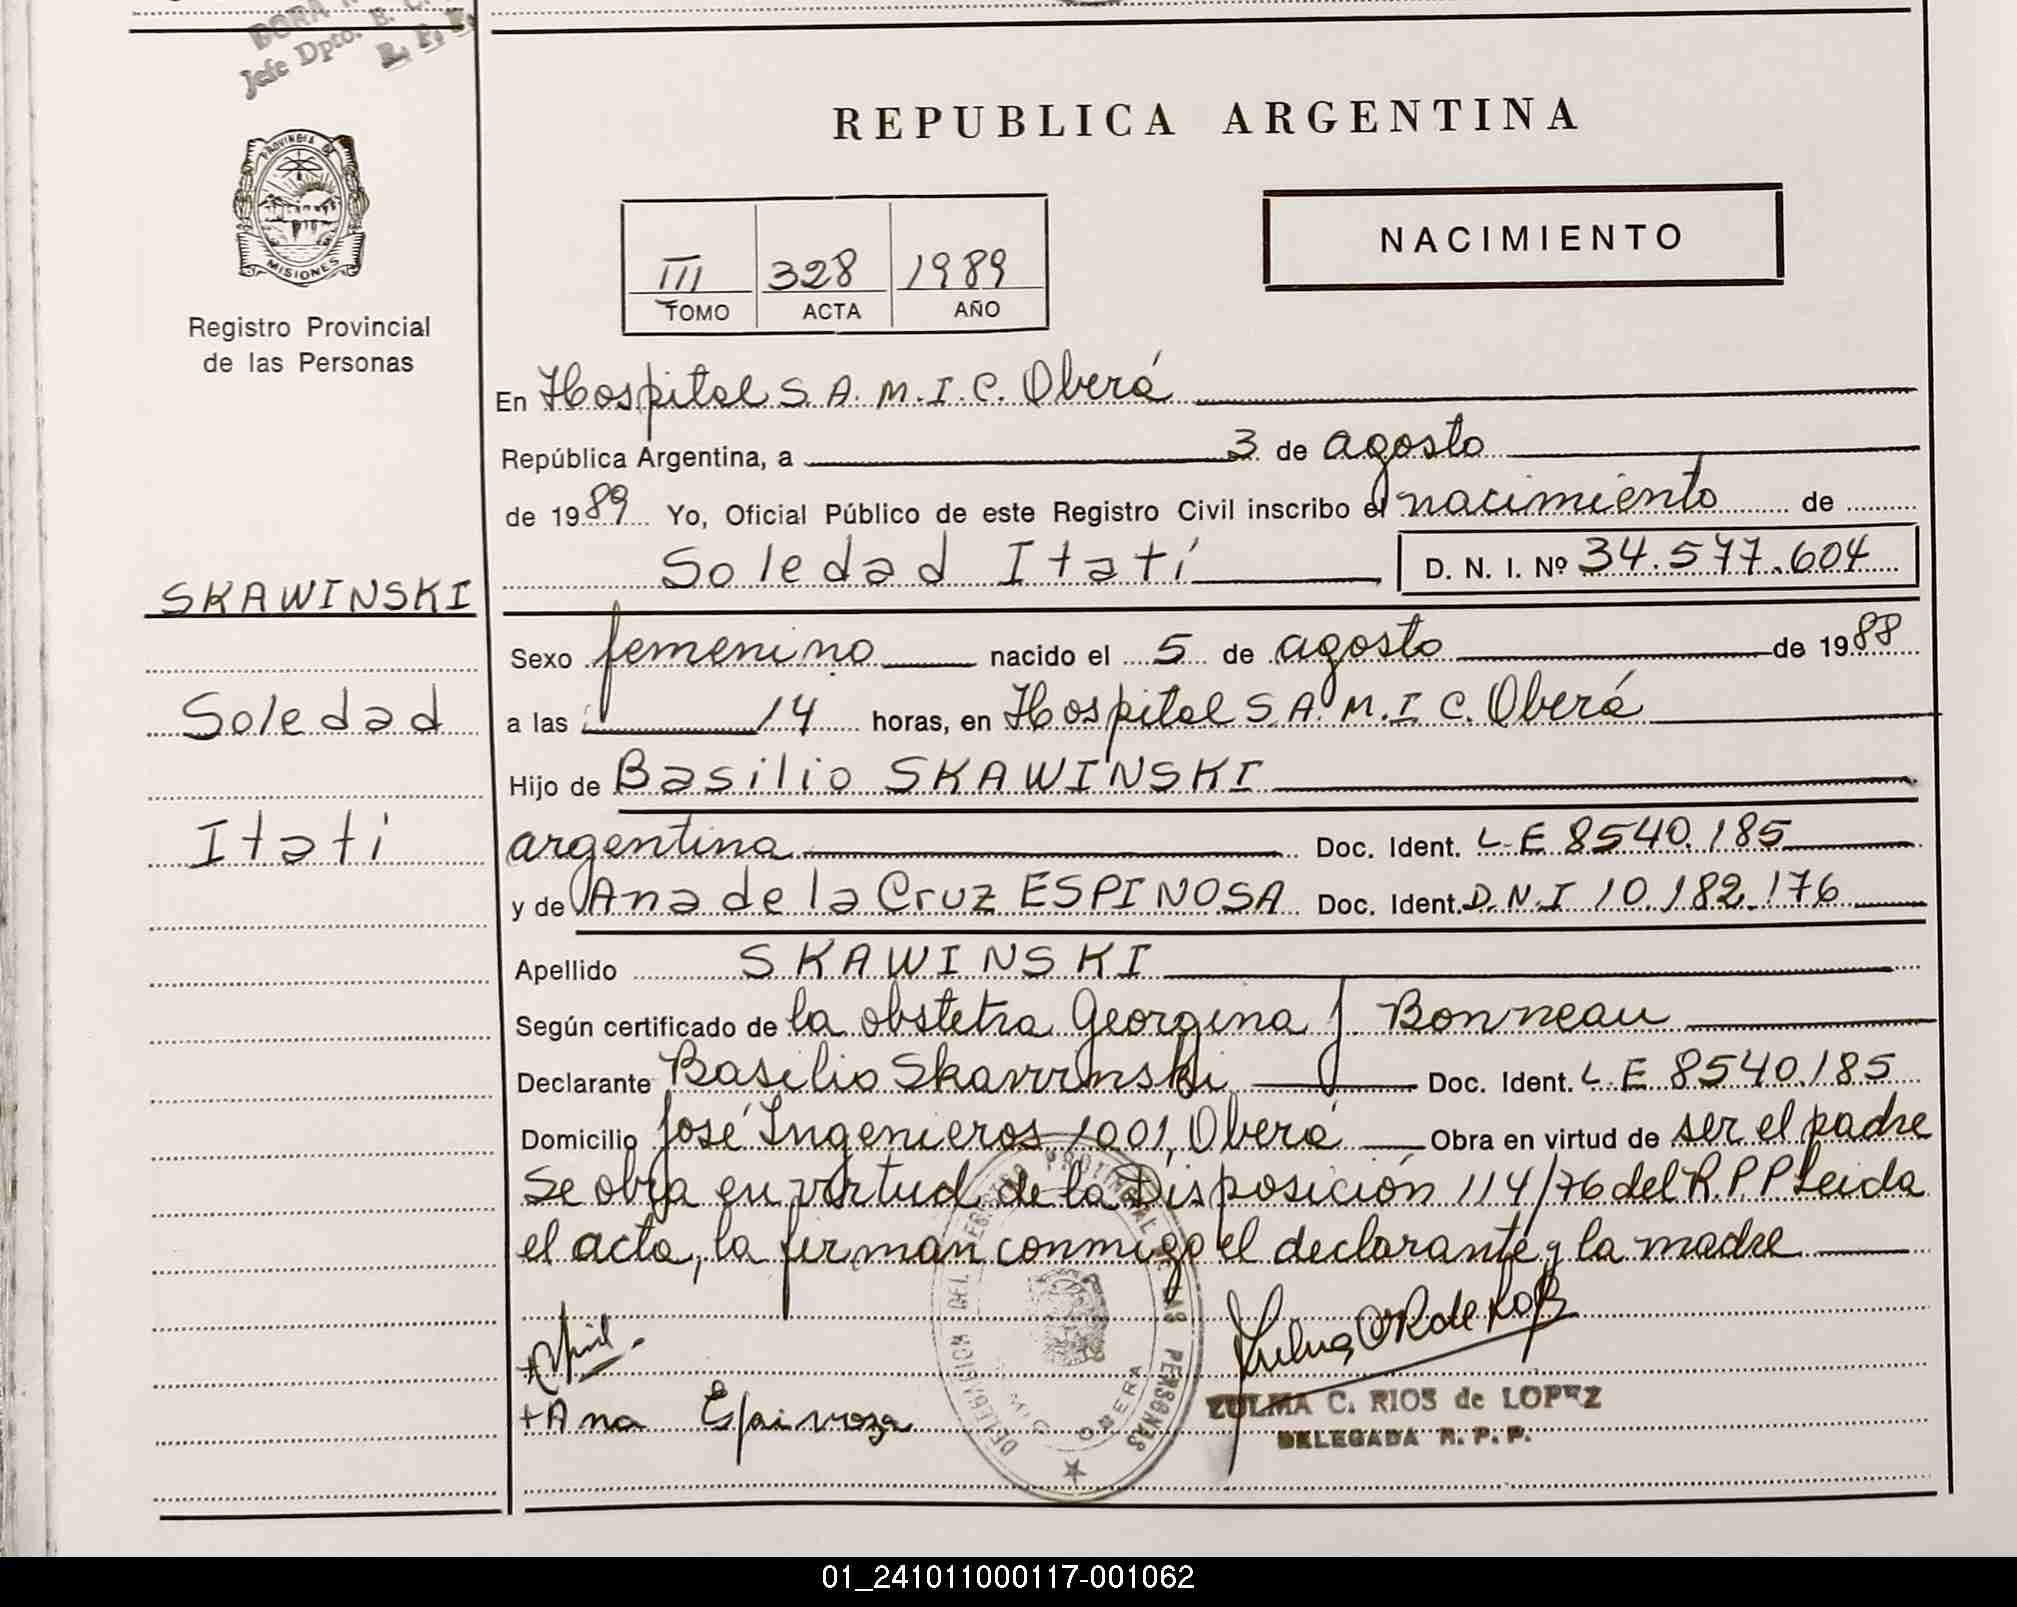 Jefe Dpto.
REPUBLICA ARGENTINA
PROVINCIA DE
MISIONES
Registro Provincial
de las Personas
III 328 1989
TOMO ACTA AÑO
NACIMIENTO
En Hospital S.A.M.I.C. Oberá
República Argentina, a 3 de agosto
de 1989 Yo, Oficial Público de este Registro Civil inscribo el nacimiento de
Soledad Itatí D. N. I. Nº 34.577.604
SKAWINSKI
Soledad
Itati
Sexo femenino nacido el 5 de agosto de 1988
a las 14 horas, en Hospital S.A.M.I.C. Oberá
Hijo de Basilio SKAWINSKI
argentina Doc. Ident. L.E 8540.185
y de Ana de la Cruz ESPINOSA Doc. Ident. D.N.I 10.182.176
Apellido SKAWINSKI
Según certificado de la obstetra Georgina J Bonneau
Declarante Basilio Skawinski Doc. Ident. L.E 8540.185
Domicilio José Ingenieros 1001, Oberá Obra en virtud de ser el padre
Se obra en virtud de la Disposición 114/76 del R.P.P Leida
el acta, la firman conmigo el declarante y la madre
+Ana Espinoza
ZULMA C. RIOS de LOPEZ
DELEGADA R. P. P.
DELEGACION DEL REGISTRO PROVINCIAL DE LAS PERSONAS
OBERA
01_241011000117-001062